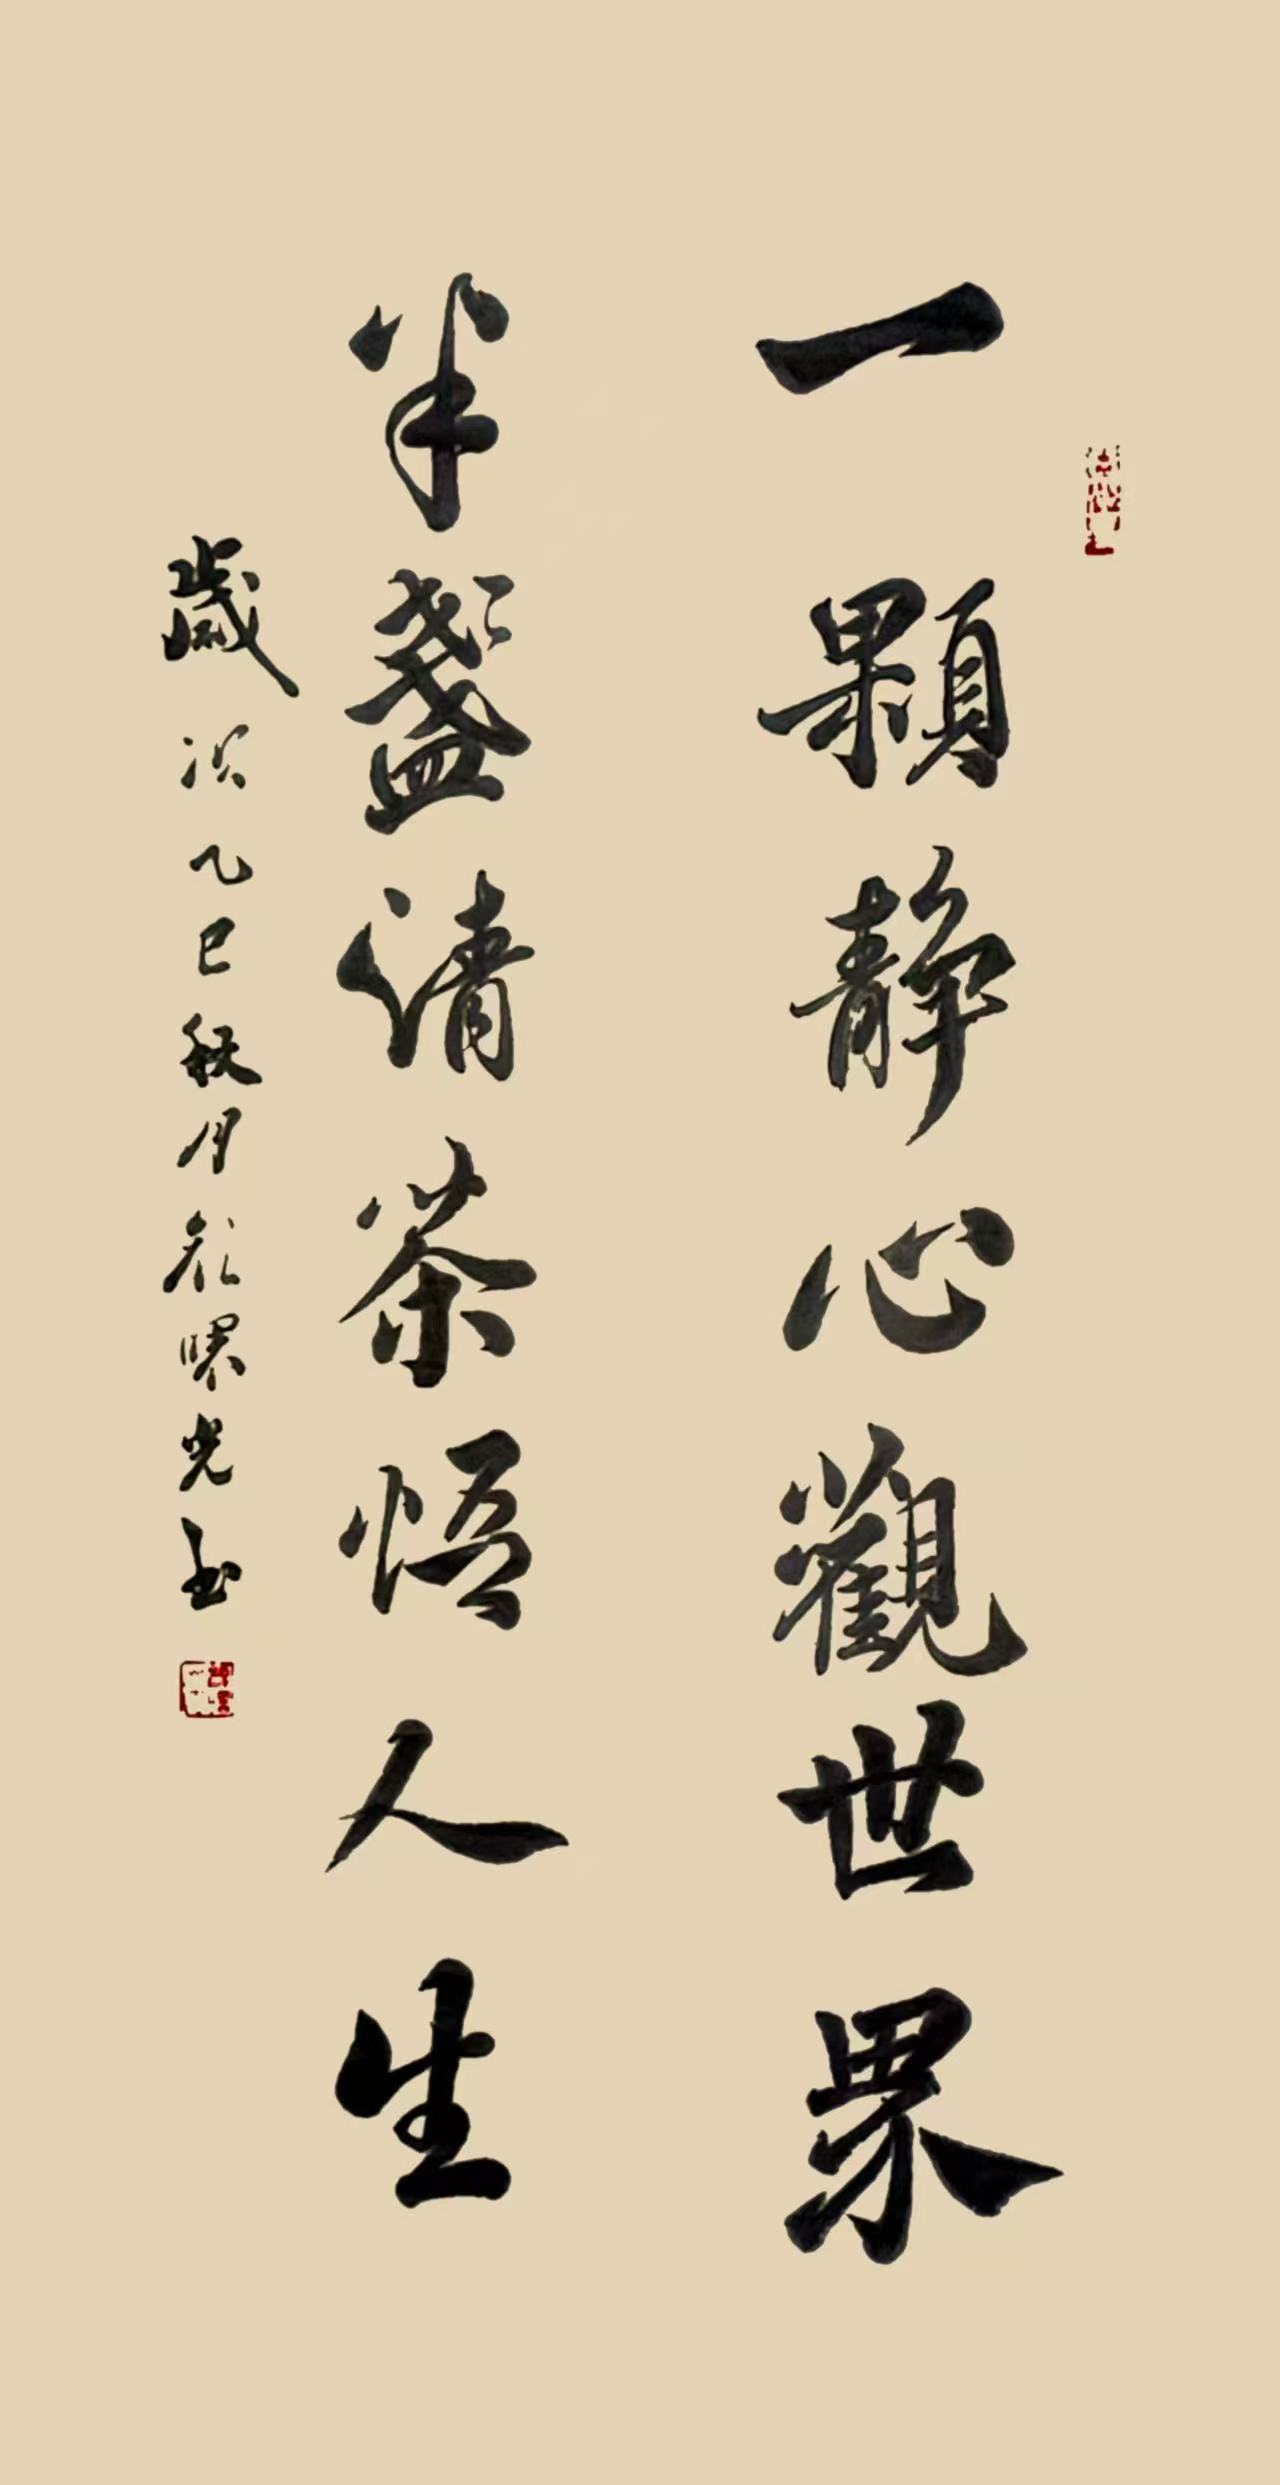 一顆静心觀世界
半盞清茶悟人生
歲次乙巳秋月 曙光书